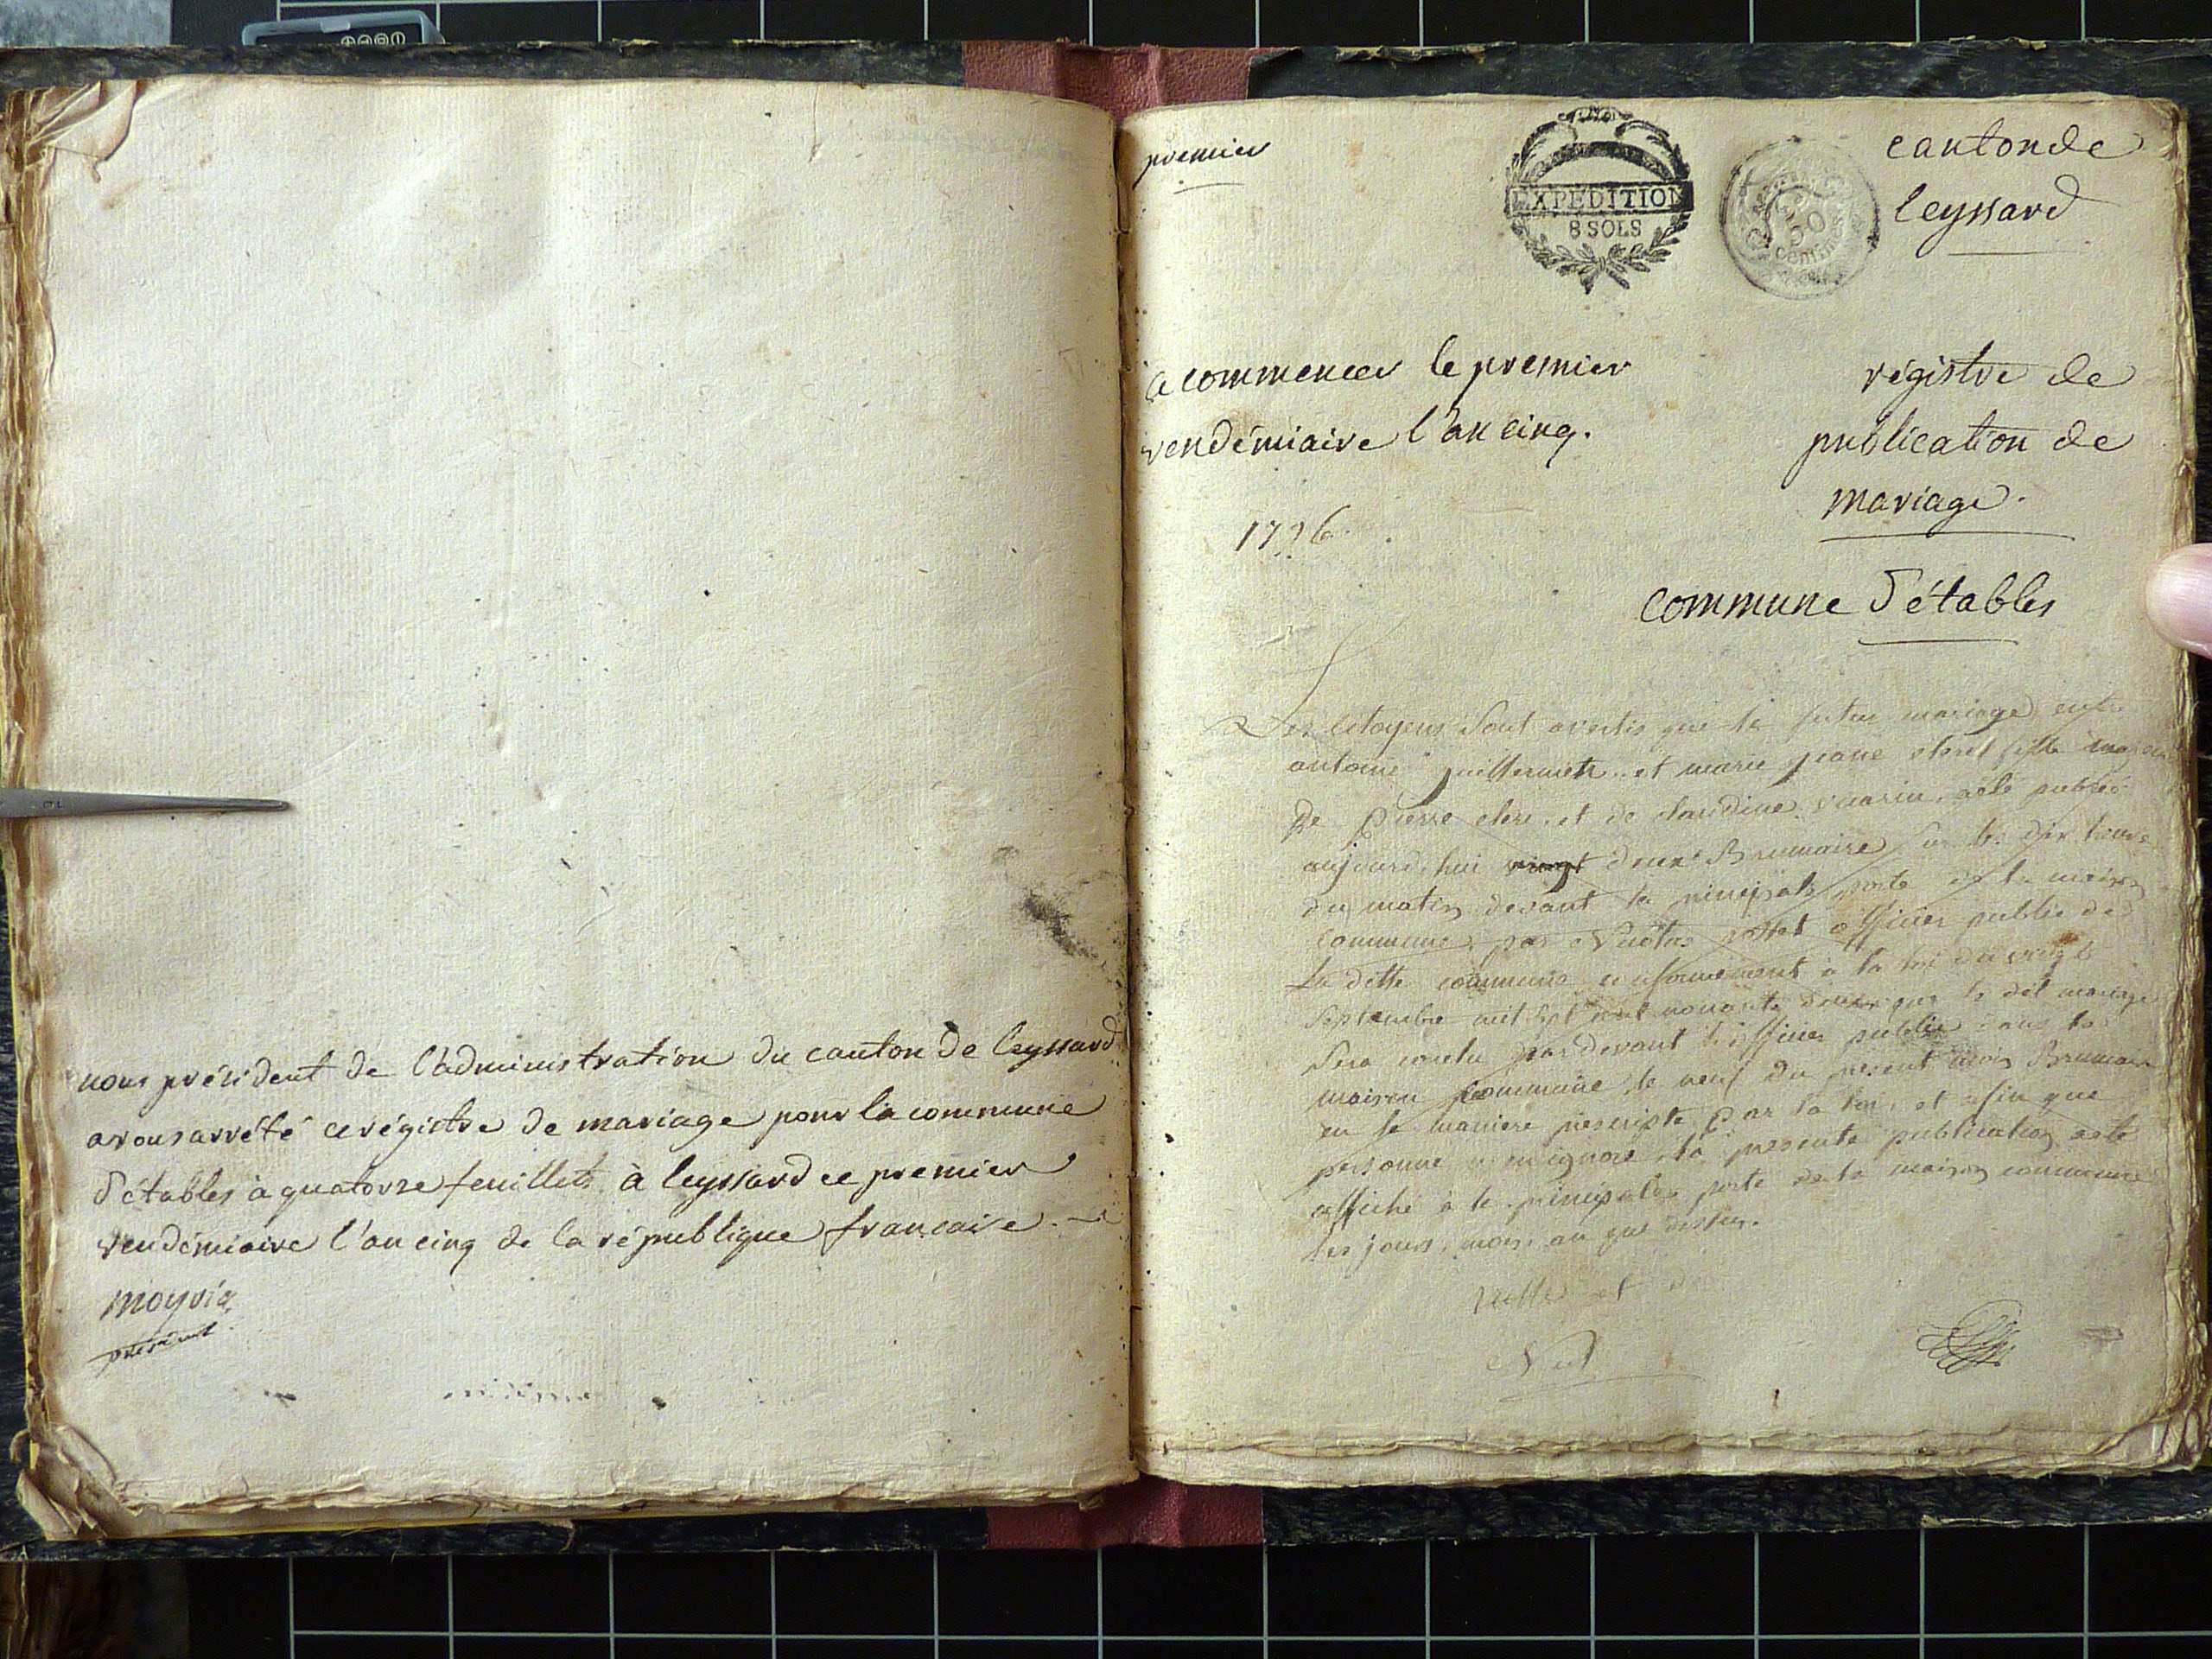 nous président de l'administration du canton de leyssard
avons arrété ce régistre de mariage pour la commune
d'étables à quatorze feuillets à leyssard ce premier
vendémiaire l'an cinq de la république francaise.
moyria
président
premier
EXPEDITION
8 SOLS
50
centimes
canton de
leyssard
a commencer le premier
vendémiaire l'an cinq.
régistre de
publication de
mariage.
1796
commune d'étables
Les Citoyens Sont avertis que le futur mariage entre
antoine guillermet et marie jeane fille
De pierre et de claudine publié
aujourd'hui deux Brumaire sur les dix heures
du matin devant la principale porte de la maison
commune par officier public de
La ditte commune conformement à la loi du vingt
Septembre mil Sept cent nonante deux que le dit mariage
Sera conclu par devant l'officier public dans la
maison commune le neuf du present mois Brumaire
en la maniere prescripte par la loi, et afin que
personne n'en ignore la presente publication
affiché à la principale porte de la maison commune
les jours, mois, an que dessus.